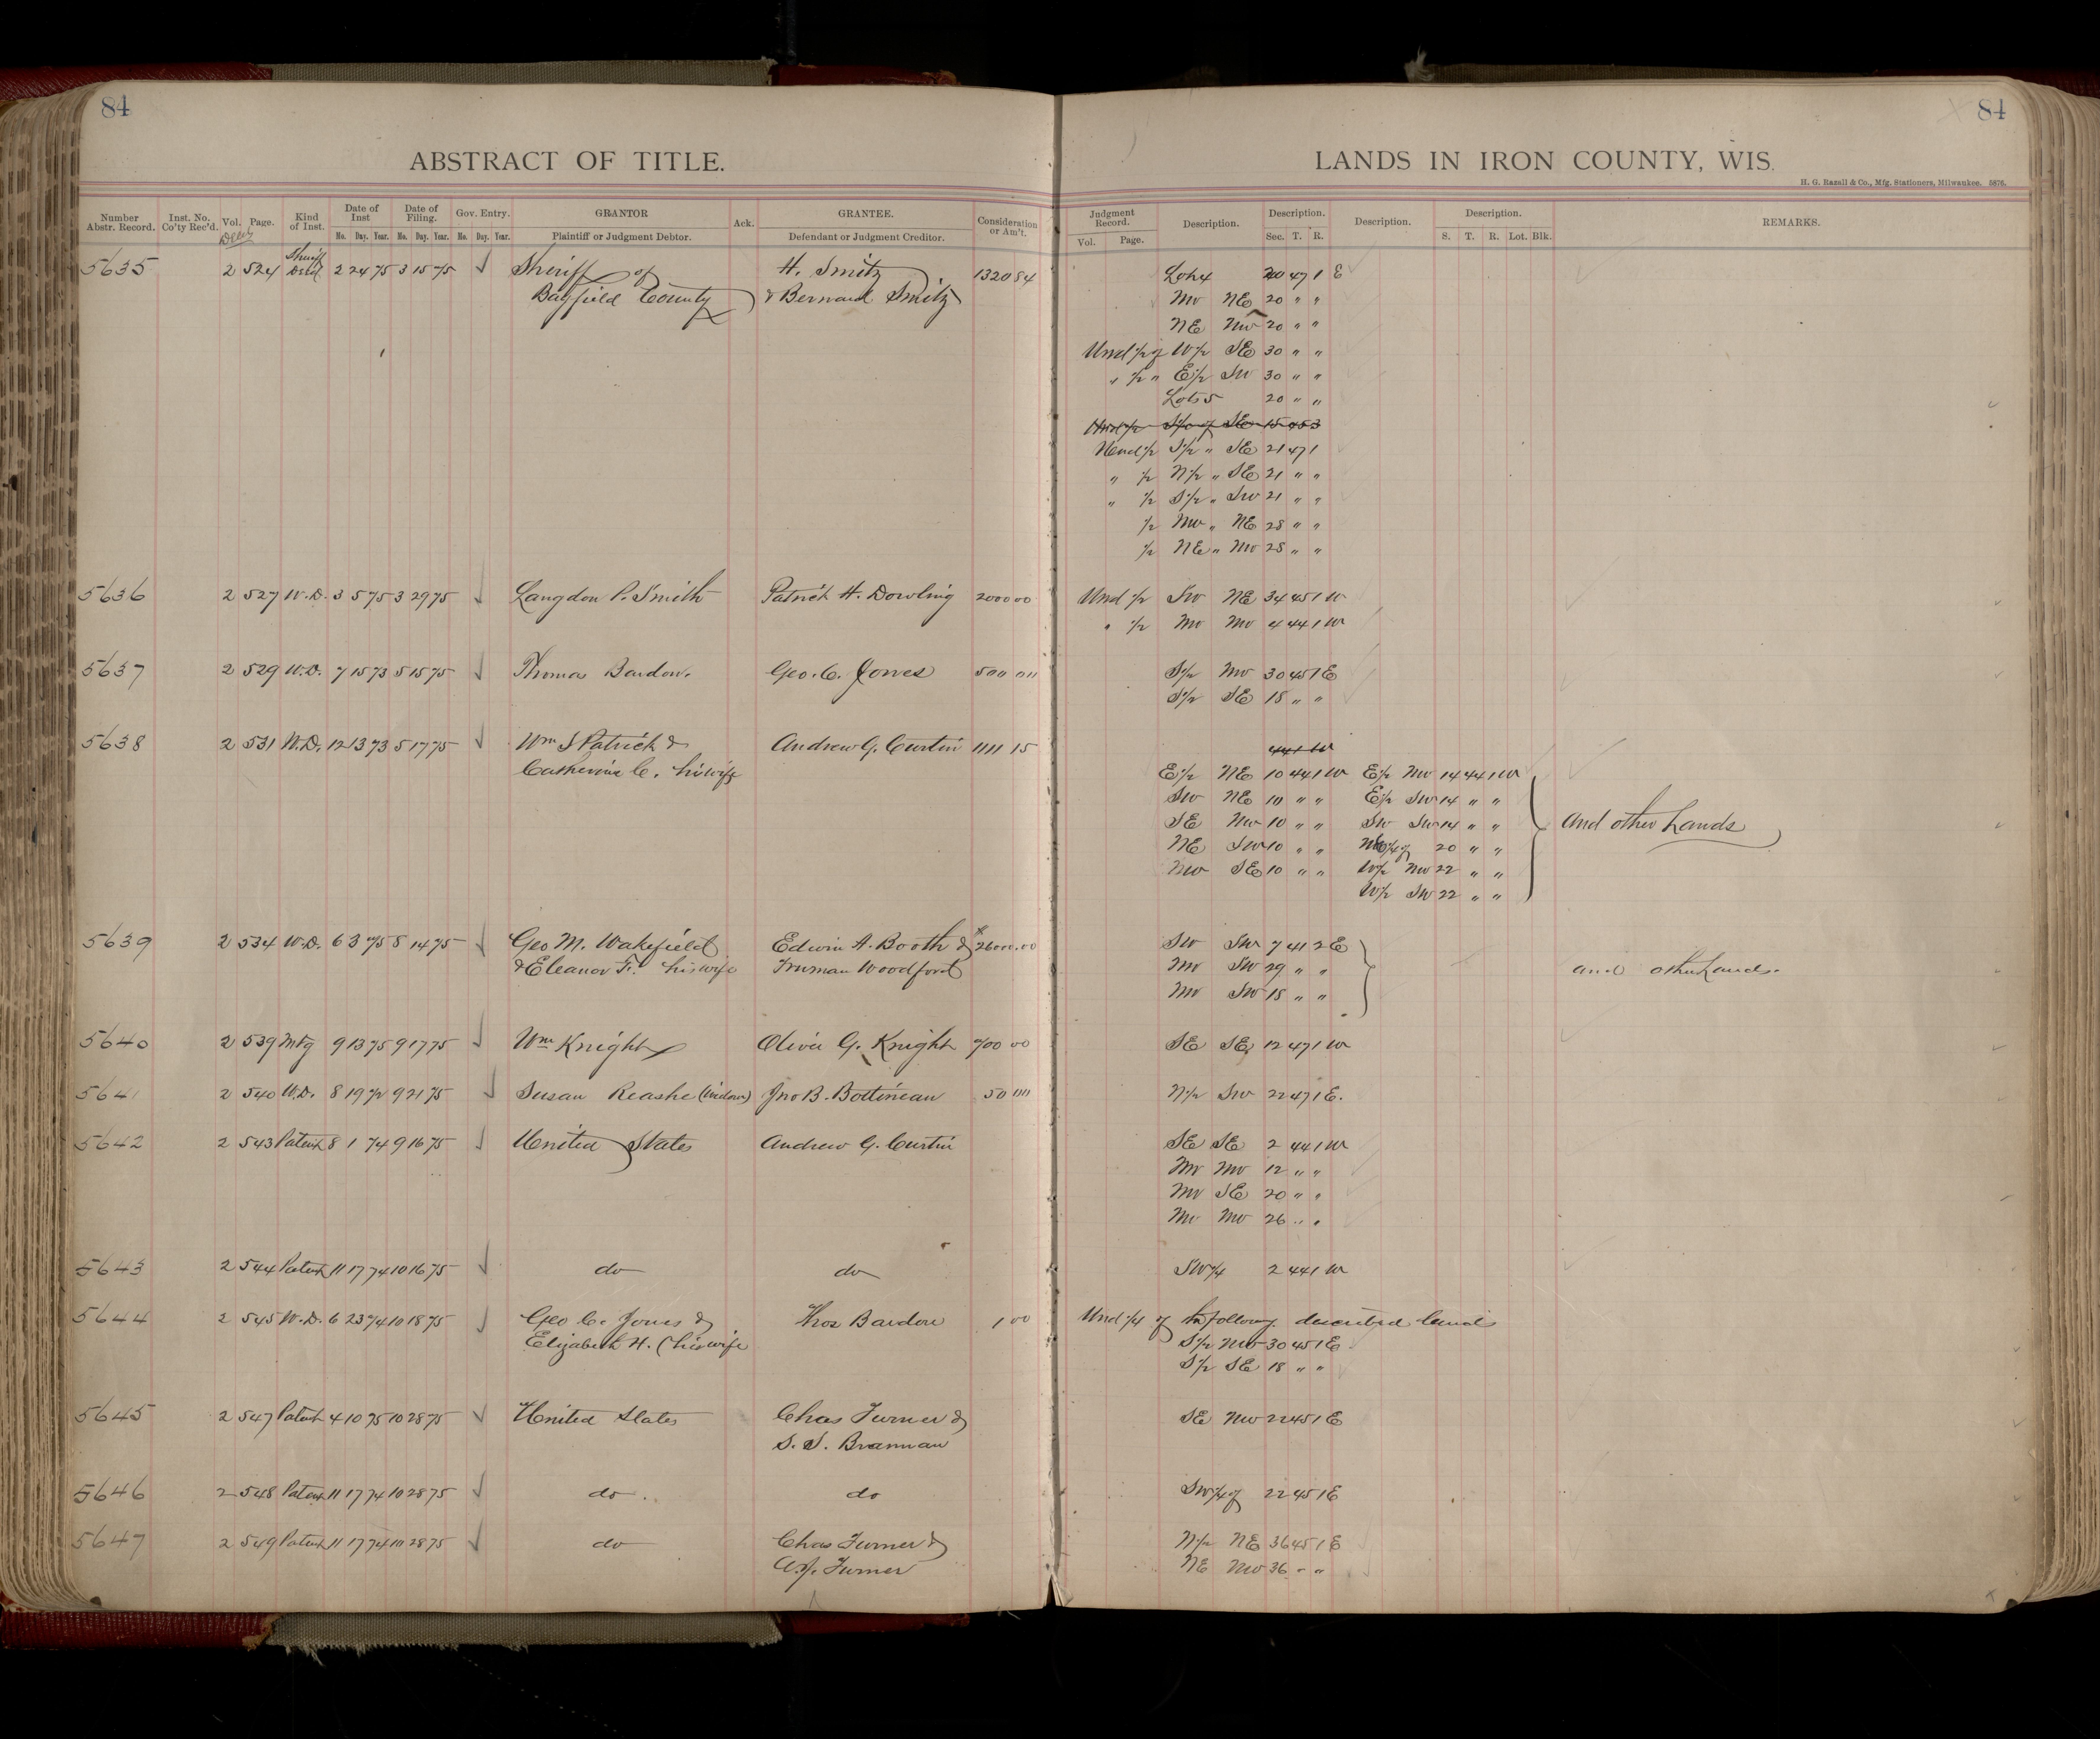 84
84
ABSTRACT OF TITLE.
LANDS IN IRON COUNTY, WIS.
H. G. Razall & Co., Mfg. Stationers, Milwaukee. 5876.
Number Abstr. Record. Inst. No. Co'ty Rec'd. Vol. Page. Kind of Inst. Date of Inst Date of Filing. Gov. Entry. GRANTOR Ack. GRANTEE. Consideration or Am't. Judgment Record. Description. Description. Description. Description. REMARKS.
Mo. Day. Year. Mo. Day. Year. Mo. Day. Year. Plaintiff or Judgment Debtor. Defendant or Judgment Creditor. Vol. Page. Sec. T. R. S. T. R. Lot. Blk.
Deeds
5635 2 524 Sheriff Deed 2 24 75 3 15 75 Sheriff of H. Smitz 1320 84 Lot 4 20 47 1 E
Bayfield County & Bernard Smitz NW NE 20 " "
NE NW 20 " "
Und 1/2 of W 1/2 SE 30 " "
" 1/2 " E 1/2 SW 30 " "
Lots 5 20 " "
Und 1/2 S 1/2 of SE 15 45 3
Und 1/2 S 1/2 " SE 21 47 1
" 1/2 N 1/2 " SE 21 " "
" 1/2 S 1/2 " SW 21 " "
1/2 NW " NE 28 " "
1/2 NE " NW 28 " "
5636 2 527 W.D. 3 5 75 3 29 75 Langdon P. Smith Patrick H. Dowling 2000 00 Und 1/2 SW NE 34 45 1 W
" 1/2 NW NW 4 44 1 W
5637 2 529 W.D. 7 15 73 5 15 75 Thomas Bardon. Geo. C. Jones 500 00 S 1/2 NW 30 45 1 E
S 1/2 SE 18 " "
5638 2 531 W.D. 12 13 73 5 17 75 Wm S Patrick & Andrew G. Curtin 1111 15 44 1 W
Catherine C. his wife E 1/2 NE 10 44 1 W E 1/2 NW 14 44 1 W
SW NE 10 " " E 1/2 SW 14 " "
SE NW 10 " " SW SW 14 " " and other Lands
NE SW 10 " " 1/4 of 20 " "
NW SE 10 " " W 1/2 NW 22 " "
W 1/2 SW 22 " "
5639 2 534 W.D. 6 3 75 8 14 75 Geo M. Wakefield Edwin A. Booth & 2600.00 SW SW 7 41 2 E
& Eleanor F. his wife Truman Woodford NW SW 29 " " and other Lands.
NW SW 18 " "
5640 2 539 Mtg 9 13 75 9 17 75 Wm Knight Oliver G. Knight 700 00 SE SE 12 47 1 W
5641 2 540 W.D. 8 19 72 9 21 75 Susan Reashe (Widow) Jno B. Bottineau 50 00 N 1/2 SW 22 47 1 E.
5642 2 543 Patent 8 1 74 9 16 75 United States Andrew G. Curtin SE SE 2 44 1 W
NW NW 12 " "
NW SE 20 " "
NW NW 26 " "
5643 2 544 Patent 11 17 74 10 16 75 do do SW 1/4 2 44 1 W
5644 2 545 W.D. 6 23 74 10 18 75 Geo C. Jones & Thos Bardon 1 00 Und 1/4 of the following described lands
Elizabeth H. (his wife S 1/2 NW 30 45 1 E
S 1/2 SE 18 " "
5645 2 547 Patent 4 10 75 10 28 75 United States Chas Turner & SE NW 22 45 1 E
S. S. Brannan
5646 2 548 Patent 11 17 74 10 28 75 do do SW 1/4 of 22 45 1 E
5647 2 549 Patent 11 17 74 10 28 75 do Chas Turner & N 1/2 NE 36 45 1 E
A.J. Turner NE NW 36 " "